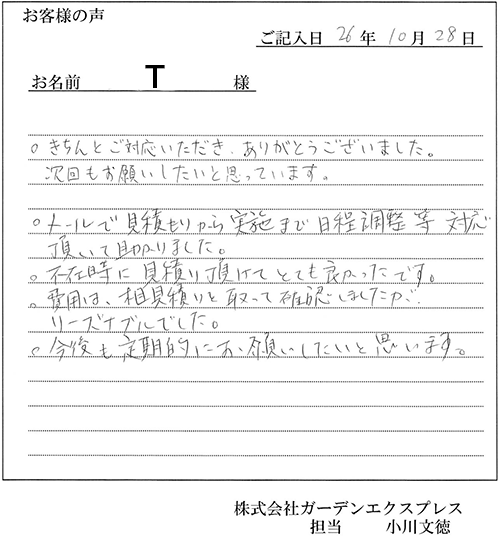 お客様の声
ご記入日 26年 10月 28日
お名前 T 様
○きちんとご対応いただき、ありがとうございました。
次回もお願いしたいと思っています。
○メールで見積もりから実施まで日程調整等 対応
頂いて助かりました。
○不在時に見積り頂けてとても良かったです。
○費用は、相見積りと取って確認しましたが、
リーズナブルでした。
○今後も定期的にお願いしたいと思います。
株式会社ガーデンエクスプレス
担当 小川文徳